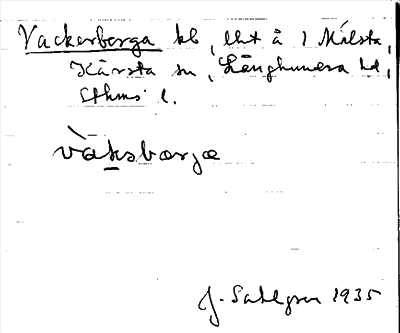 Vackerberga kb, lht å 1 Målsta,
Kårsta sn, Långhundra hd,
Sthms l.
vàksbærjæ
J. Sahlgren 1935